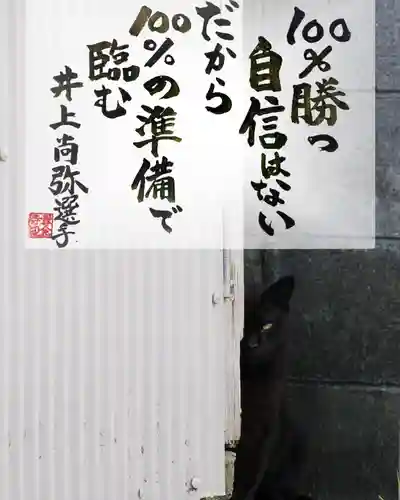 100%勝つ
自信はない
だから
100%の準備で
臨む
井上尚弥選手